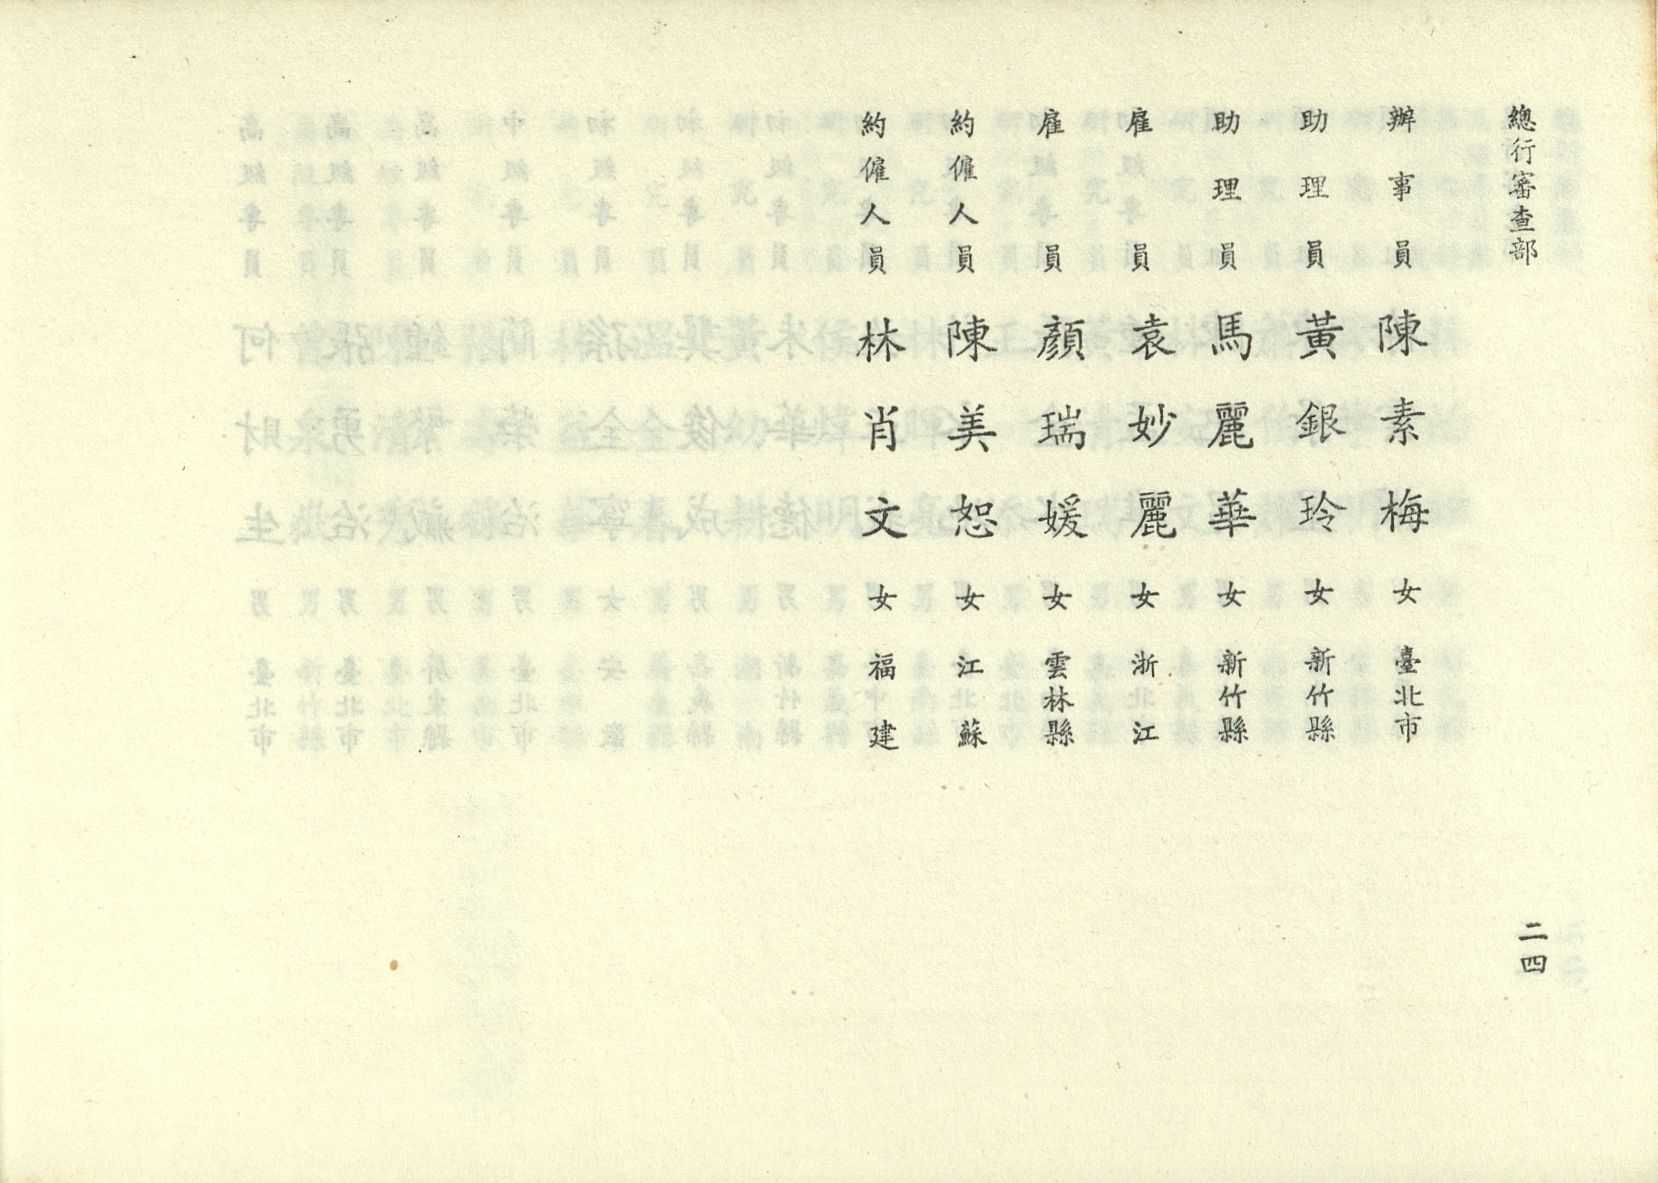 總行審查部
二四
辦事員 陳素梅 女 臺北市
助理員 黃銀玲 女 新竹縣
助理員 馬麗華 女 新竹縣
雇員 袁妙麗 女 浙江
雇員 顏瑞媛 女 雲林縣
約僱人員 陳美恕 女 江蘇
約僱人員 林肖文 女 福建